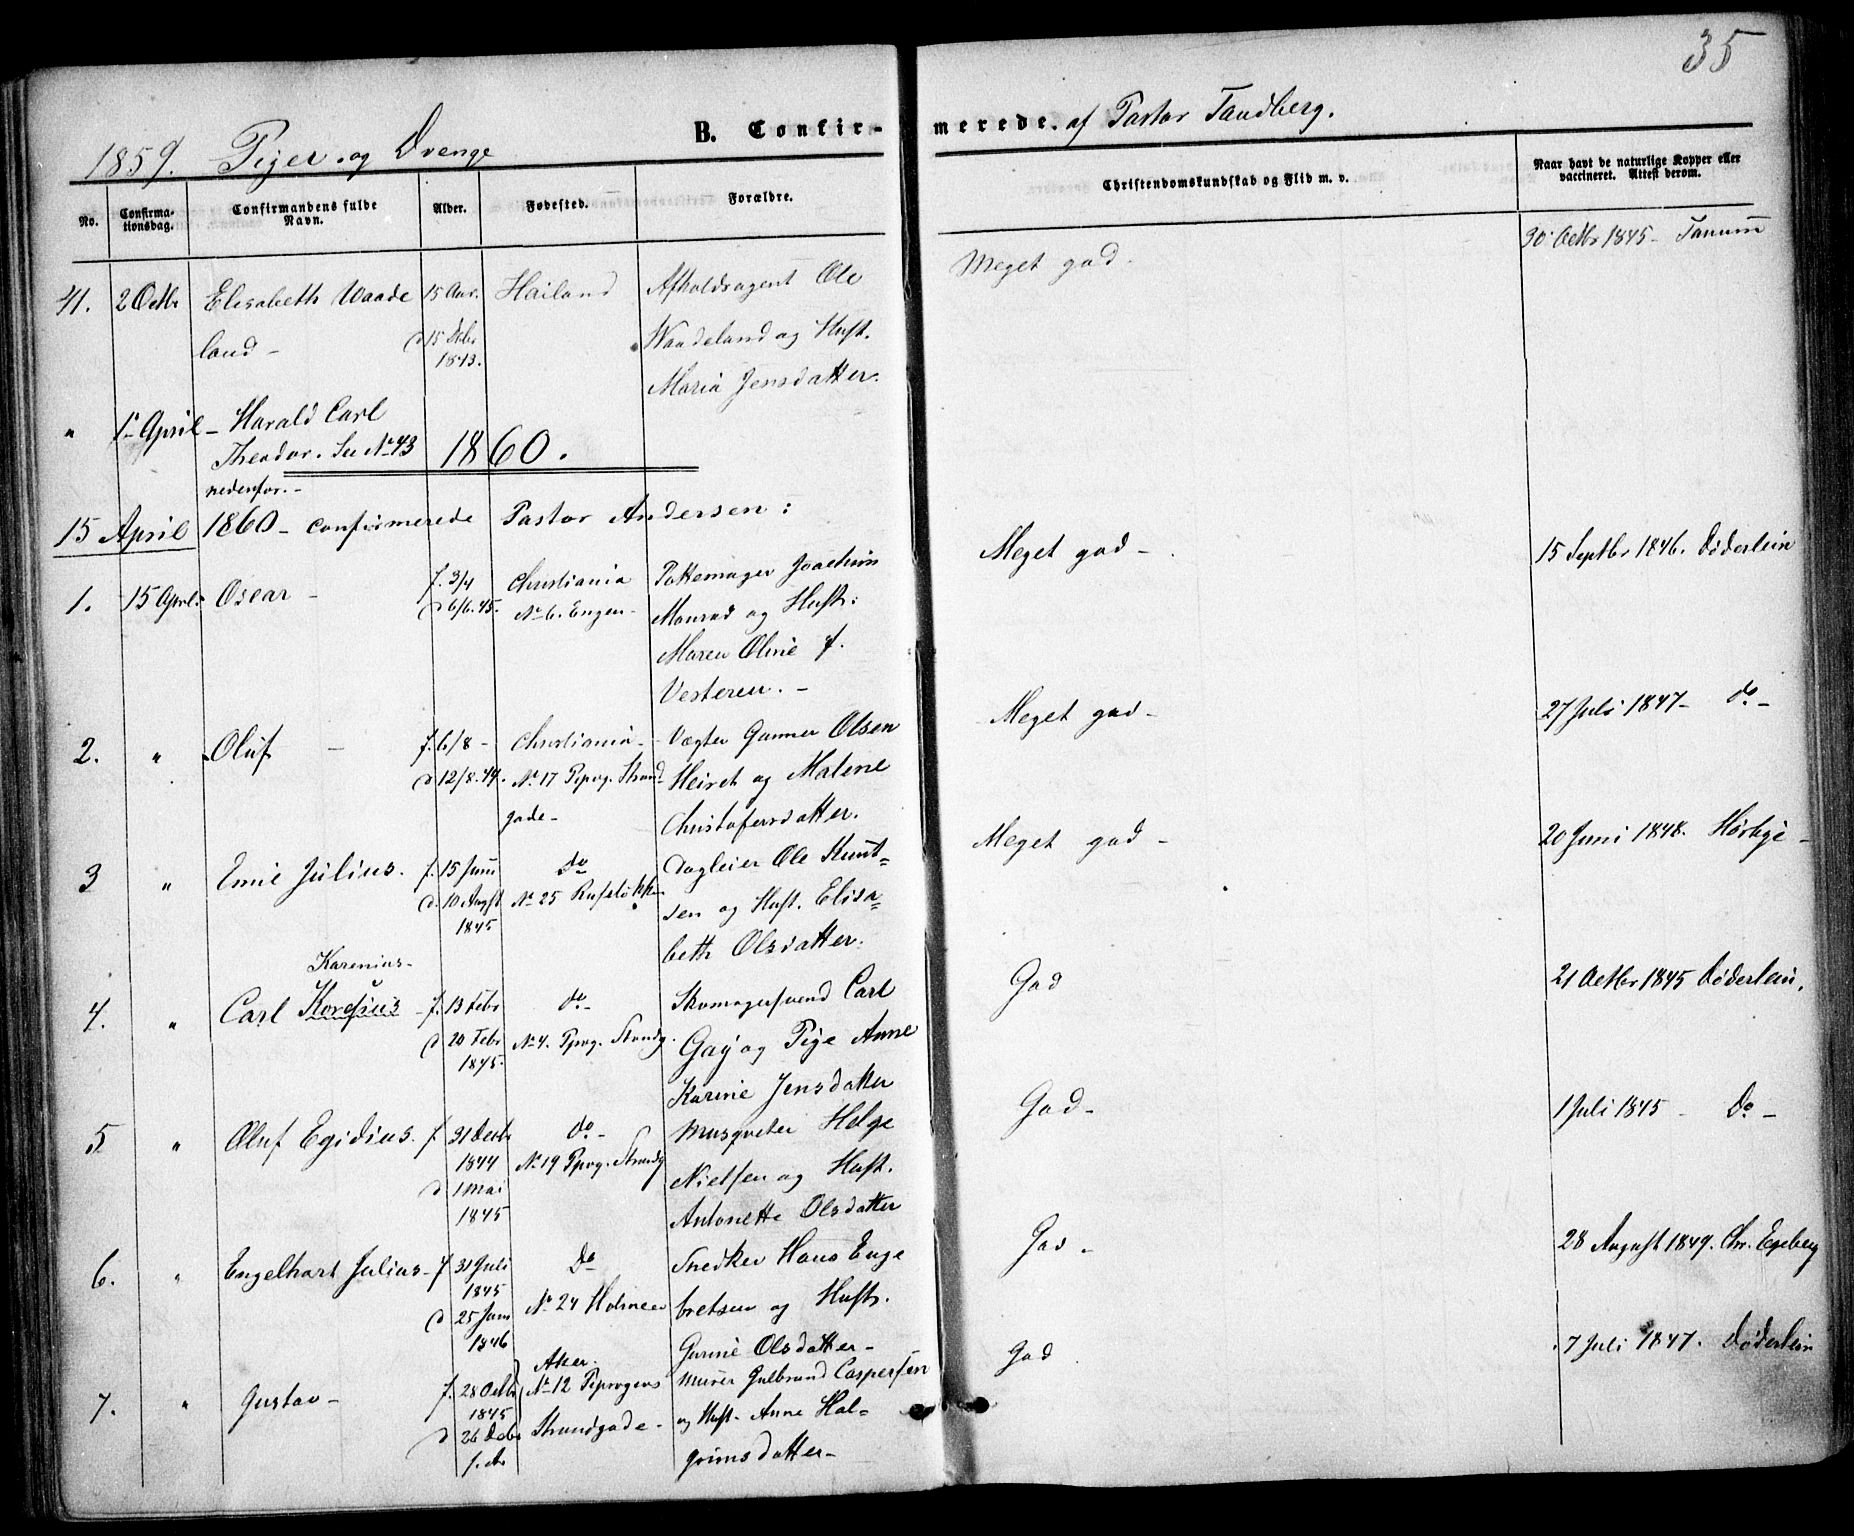 35
1859. Piger og Drenge
B. Confir-merede. af Pastor Tandberg.
No.
Confirma-tionsdag.
Confirmandens fulde Navn.
Alder.
Fødested.
Forældre.
Christendomskundskab og Flid m. v.
Naar havt de naturlige Kopper eller vaccineret. Attest derom.
41. 2 Octbr Elisabeth Waade 15 Aar. Hailand Afholdsagent Ole Meget god. 30 Octbr 1845 - Tanum
land - d 15 Debr Waadeland og Hust.
1843. Maria Jensdatter.
" 1 April - Harald Carl
Theodor. See No 43 1860.
nedenfor. -
15 April 1860 - confirmerede Pastor Andersen:
1. 15 April Oscar - f. 3/4 Christiania Pottemager Joachim Meget god - 15 Septbr 1846. Døderlein
d 6/6. 45. No 6. Engen - Monrad og Hustr:
Maren Oline f.
Vesteren. -
2. " Oluf - f. 6/8 - Christiania - Vægter Gunner Olsen Meget god - 27 Juli 1847 - do -
d 12/8. 44. No 17 Pipvg. Strand Heiret og Malene
gade - Christofersdatter.
3 " Emil Julius. f. 15 Juni do Dagleier Ole Knut= Meget god - 20 Juni 1848.
d. 10 Augst No 25 Ruseløkken sen og Hust. Elisa=
1845 beth Olsdatter.
Karenius -
4. " Carl - f. 13 Febr do - Skomagersvend Carl God 21 Octbr 1845 Døderlein.
d 20 Febr No 4. Ppvg. Strandg. Gay og Pige Anne
1845. Karine Jensdatter
5 " Oluf Egidius. f. 31 Decbr do - Musqueter Helge God - 1 Juli 1845 - Do -
1844 No 19 Ppvg. Strandg Nielsen og Hust.
d 1 Mai Antonette Olsdatter
1845
6. " Engelhart Julius - f 31 Juli Do Snedker Hans Enge God - 28 August 1849. Chr. Egeberg
1845 No 24 Holmen bretsen og Hustr.
d 25 Jan Gurine Olsdatter -
1846
7. " Gustav - f. 28 Octbr Aker. Murer Gulbrand Caspersen God 7 Juli 1847. Døderlein
1845 No 12 Pipvogens og Hust. Anne Hal=
d 26 Debr Strandgade - grimsdatter -